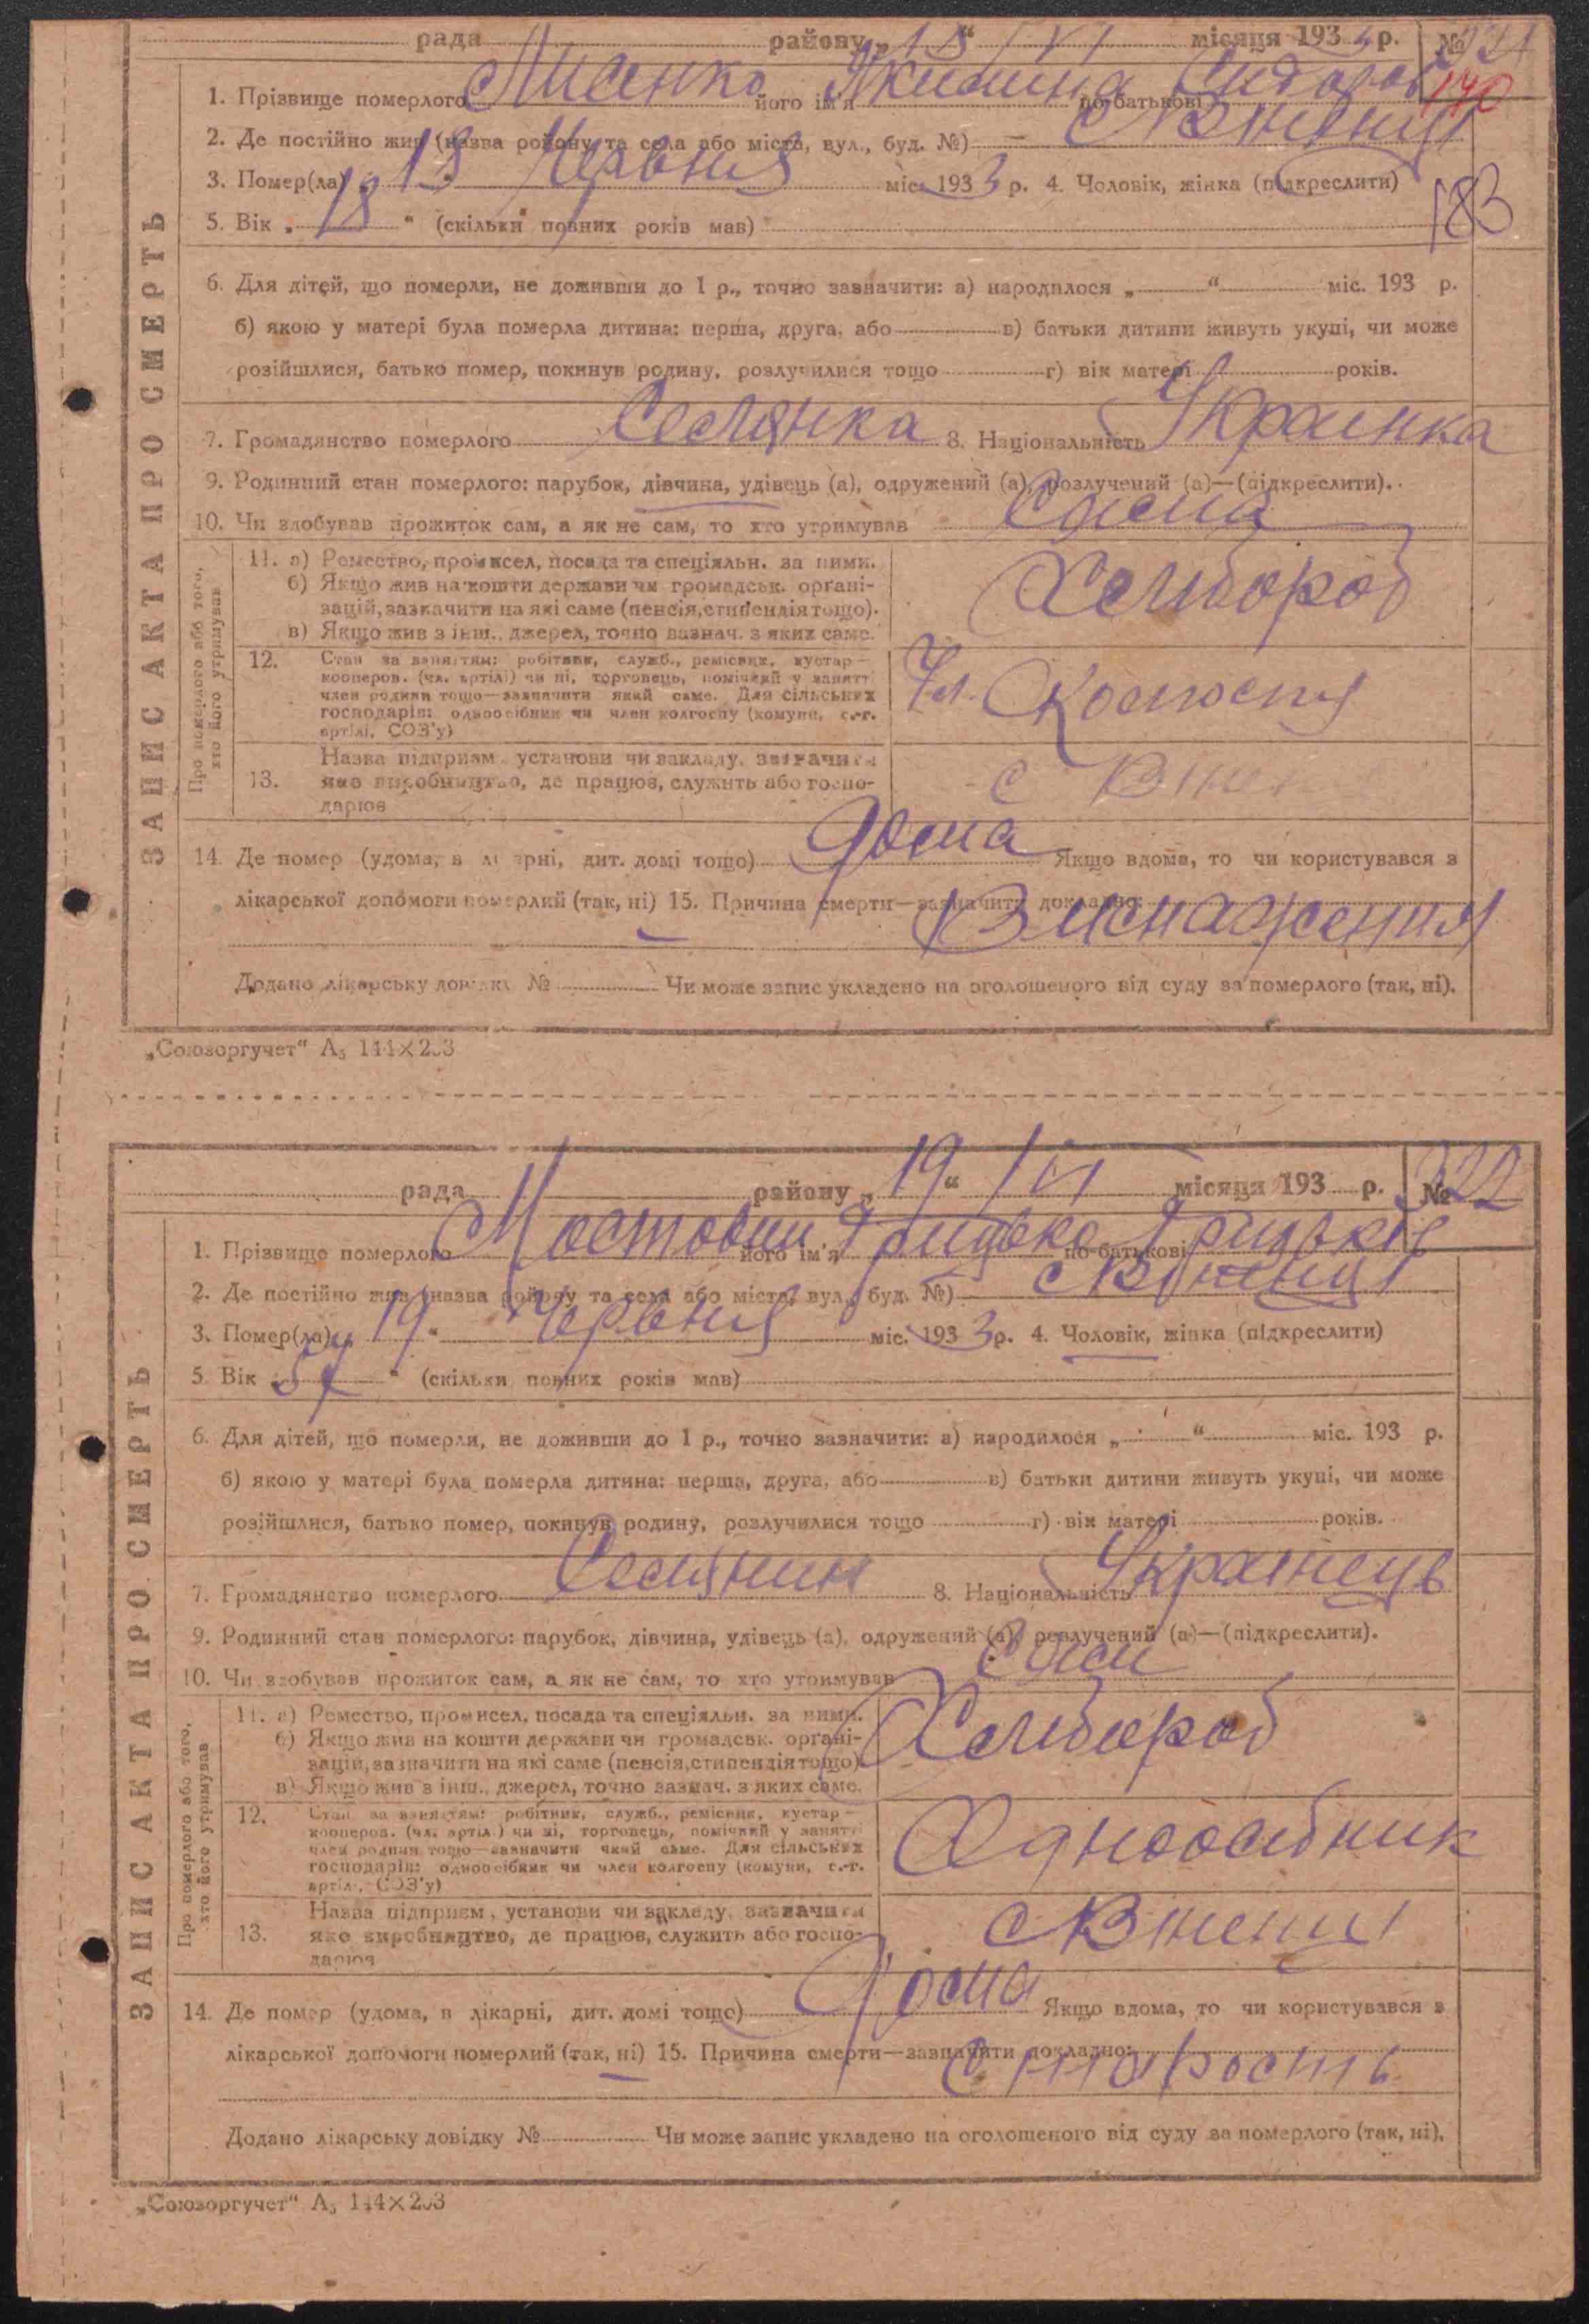 рада району „18“ VI місяця 1933 р. № 321
140
1. Прізвище померлого Лисенко його ім'я Якилина по-батькові Сидоров
2. Де постійно жив (назва району та села або міста, вул., буд. №) — с Вюнищі
3. Помер(ла) „18“ Червня міс. 1933 р. 4. Чоловік, жінка (підкреслити)
183
5. Вік „18“ (скільки повних років мав)
6. Для дітей, що померли, не доживши до 1 р., точно зазначити: а) народилося „ “ міс. 193 р.
б) якою у матері була померла дитина: перша, друга, або в) батьки дитини живуть укупі, чи може
розійшлися, батько помер, покинув родину, розлучилися тощо г) вік матері років.
7. Громадянство померлого Селянка 8. Національність Украинка
9. Родинний стан померлого: парубок, дівчина, удівець (а), одружений (а), розлучений (а)—(підкреслити).
10. Чи здобував прожиток сам, а як не сам, то хто утримував Сама
ЗАПИС АКТА ПРО СМЕРТЬ
Про померлого або того, хто його утримував
11. а) Ремество, промисел, посада та спеціяльн. за ними.
б) Якщо жив на кошти держави чи громадськ. органі-
зацій, зазначити на які саме (пенсія, стипендія тощо).
в) Якщо жив з інш., джерел, точно зазнач. з яких саме.
Хлібороб
12. Стан за заняттям: робітник, служб., ремісник, кустар—
кооперов. (чл. артілі) чи ні, торговець, помічний у занятті
член родини тощо—зазначити який саме. Для сільських
господарів: одноосібник чи член колгоспу (комуни, с.-г.
артілі, СОЗ'у)
Чл. Колгоспу
13. Назва підприєм., установи чи закладу, зазначити
яке виробництво, де працює, служить або госпо-
дарює
с
14. Де помер (удома, в лікарні, дит. домі тощо) Дома Якщо вдома, то чи користувався з
лікарської допомоги померлий (так, ні) 15. Причина смерти—зазначити докладно:
Виснаження
Додано лікарську довідку № Чи може запис укладено на оголошеного від суду за померлого (так, ні).
„Союзоргучет“ А5 144×203
рада району „19“ VI місяця 193 р. № 322
1. Прізвище померлого Мостовий його ім'я Грицько по-батькові Грицьків
2. Де постійно жив (назва району та села або міста, вул., буд. №) — с Вюнищі
3. Помер(ла) „19“ Червня міс. 1933 р. 4. Чоловік, жінка (підкреслити)
5. Вік „57“ (скільки повних років мав)
6. Для дітей, що померли, не доживши до 1 р., точно зазначити: а) народилося „ “ міс. 193 р.
б) якою у матері була померла дитина: перша, друга, або в) батьки дитини живуть укупі, чи може
розійшлися, батько помер, покинув родину, розлучилися тощо г) вік матері років.
7. Громадянство померлого Селянин 8. Національність Українець
9. Родинний стан померлого: парубок, дівчина, удівець (а), одружений (а), розлучений (а)—(підкреслити).
10. Чи здобував прожиток сам, а як не сам, то хто утримував Сам
ЗАПИС АКТА ПРО СМЕРТЬ
Про померлого або того, хто його утримував
11. а) Ремество, промисел, посада та спеціяльн. за ними.
б) Якщо жив на кошти держави чи громадськ. органі-
зацій, зазначити на які саме (пенсія, стипендія тощо)
в) Якщо жив з інш., джерел, точно зазнач. з яких саме.
Хлібороб
12. Стан за заняттям: робітник, служб., ремісник, кустар—
кооперов. (чл. артілі) чи ні, торговець, помічний у занятті
член родини тощо—зазначити який саме. Для сільських
господарів: одноосібник чи член колгоспу (комуни, с.-г.
артілі, СОЗ'у)
Одноосібник
13. Назва підприєм., установи чи закладу, зазначити
яке виробництво, де працює, служить або госпо-
дарює
с Вюнищі
14. Де помер (удома, в лікарні, дит. домі тощо) Дома Якщо вдома, то чи користувався з
лікарської допомоги померлий (так, ні) 15. Причина смерти—зазначити докладно:
Старость
Додано лікарську довідку № Чи може запис укладено на оголошеного від суду за померлого (так, ні).
„Союзоргучет“ А5 144×203